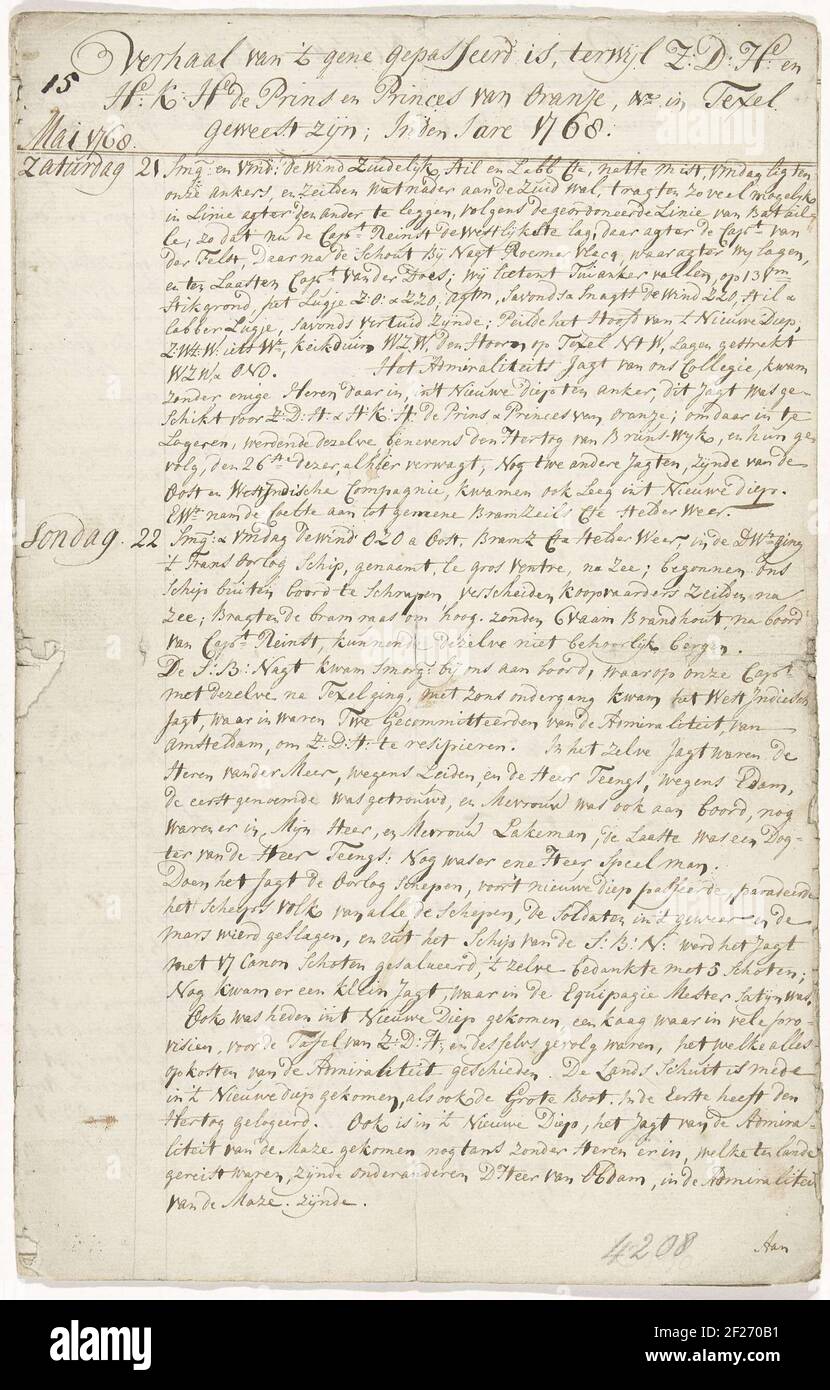 Verhaal van 't gene gepasseerd is, terwijl Z: D: H: en
15
H: K: H: de Prins en Princes van Oranje, in Texel
Mai 1768.
geweest zijn; In den Jare 1768:
Zaturdag 21 Smg: en vmd: de wind Zuidelijk, stil en Labb Cte, natte mist, vmdag ligten
onze ankers, en zeilden wat nader aan de Zuid wal, tragten zo veel mogelijk
in Linie agter den ander te leggen, volgens de geordoneerde Linie van Batail-
le; zo dat nu de Capt. Reinst de westlijkste lag, daar agter de Capt. van
der Felst, daar na de Schout Bij Nagt Roemer Vlacq, waar agter wy lagen,
en ten Laasten Capt. van der Does; wij lieten 't Tui anker vallen, op 13 vm
stik grond, het Lugje Z:O: & ZZO, agtm, savonds & Snagts de wind ZZO, stil &
labber Lugje, savonds vertuid zijnde; Peilde het Hoofd van 't Nieuwe Diep,
Z:Wt:W: iets W, kijkduin WZW, den Hoorn op Texel NtW, Lagen gestrekt
WZW & ONO. Het Admiraliteits Jagt van ons Collegie, kwam
zonder enige Heren daar in, int Nieuwe Diep ten anker, dit Jagt was ge-
schikt voor Z: D: H: & H: K: H: de Prins & Princes van Oranje; om daar in te
Logeren, werdende dezelve benevens den Hertog van Brunswyk, en hun ge-
volg, den 26ste dezer, alhier verwagt, Nog twe andere Jagten, zijnde van de
Oost en West Indische Compagnie, kwamen ook Leeg int Nieuwe diep.
EWt nam de Coelte aan tot gemene Bramzeils Cte Helder Weer.
Sondag. 22 Smg: & vmdag De wind OZO a Oost, Bramz Cte Helder Weer, in de DWt ging
't Frans Oorlog Schip, genaemt, le gros ventre, na Zee; begonnen ons
Schip buiten boord te Schrapen, verscheiden koopvaarders zeilden na
Zee; Bragten de bram raas om hoog. zonden 6 vaam Brandhout, na boord
van Capt. Reinst, kunnende dezelve niet behoorlijk bergen.
De S: B: Nagt kwam Smorg: bij ons aan boord, waarop onze Capt.
met dezelve na Texel ging, met zons ondergang kwam het West Indiesch
Jagt, waar in waren Twe Gecommitteerden van de Admiraliteit, van
Amsteldam, om Z: D: H: te resipieren. In het zelve Jagt waren De
Heren van der Meer, wegens Leiden, en de Heer Teengs, wegens Edam,
De eerst genoemde was getrouwd, en Mevrouw was ook aan boord, nog
waren er in, Mijn Heer, en Mevrouw Lakeman, de Laaste was een Dog-
ter van de Heer Teengs: Nog was er ene Heer Speelman.
Doen het Jagt de Oorlog Schepen, voor 't nieuwe diep passeerde, paradeerde
het Scheeps volk van alle de Schepen, de Soldaten in 't geweer en de
mars wierd geslagen, en uit het Schip van de S: B: N: werd het Jagt
met 17 Canon Schoten gesalueerd, 't zelve bedankte met 5 Schoten;
Nog kwam er een klein Jagt, waar in de Equipagie Mester Satijn was.
Ook was heden int Nieuwe Diep gekomen, een kaag waar in vele pro-
visien, voor de Tafel van Z: D: H, en desselvs gevolg waren, het welke alles
op kosten van de Admiraliteit geschieden. De Lands Schuit is mede
in 't Nieuwe diep gekomen, als ook de Grote Boot. In de Eerste heeft den
Hertog gelogeerd. Ook is in 't Nieuwe Diep, het Jagt van de Admira-
liteit van de Maze gekomen nogtans zonder Heren er in, welke te lande
gereist waren, zijnde onder anderen D'Heer van Obdam, in de Admiraliteit
van de Maze. zijnde.
4208
Aan
alamy
Image ID: 2F270B1
www.alamy.com